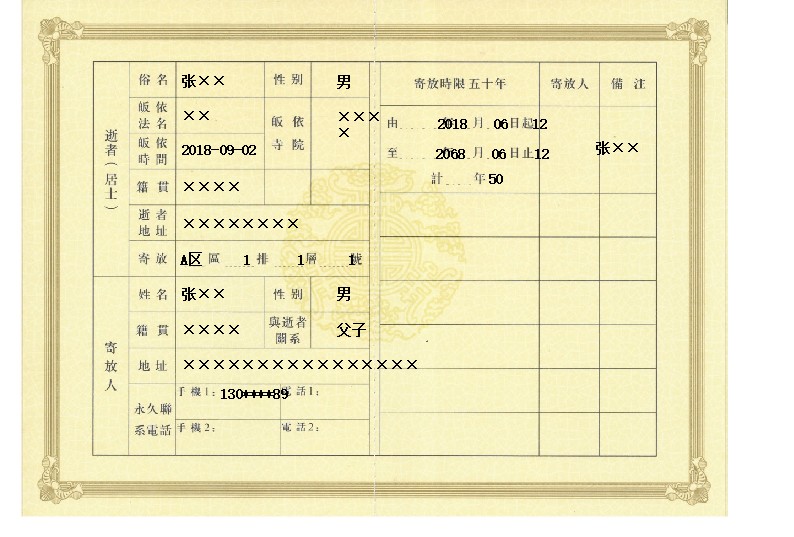 俗名 张×× 性别 男
皈依法名 ×× 皈依寺院 ××××
皈依時間 2018-09-02
籍貫 ××××
逝者（居士）
逝者地址 ××××××××
寄放 A区 區 1 排 1 層 1 號
姓名 张×× 性别 男
籍貫 ×××× 與逝者關系 父子
寄放人
地址 ××××××××××××××××
永久聯系電話 手機1: 130****89 電話1:
手機2: 電話2:
寄放時限五十年 寄放人 備注
由 2018 年 月 06 日起 12
至 2068 年 月 06 日止 12
张××
計 年 50